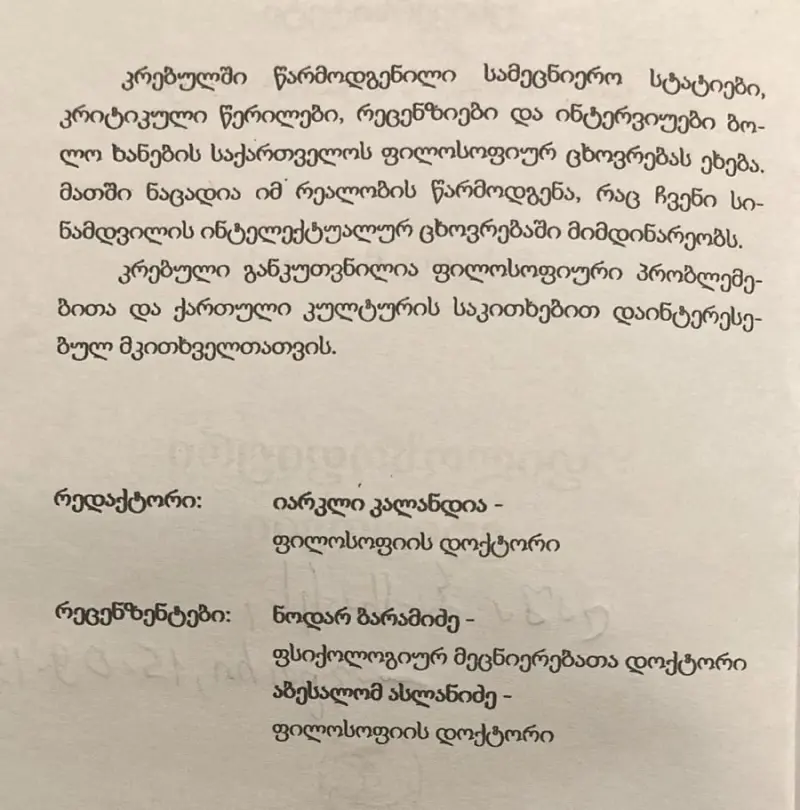 კრებულში წარმოდგენილი სამეცნიერო სტატიები,
კრიტიკული წერილები, რეცენზიები და ინტერვიუები ბო-
ლო ხანების საქართველოს ფილოსოფიურ ცხოვრებას ეხება.
მათში ნაცადია იმ რეალობის წარმოდგენა, რაც ჩვენი სი-
ნამდვილის ინტელექტუალურ ცხოვრებაში მიმდინარეობს.
კრებული განკუთვნილია ფილოსოფიური პრობლემე-
ბითა და ქართული კულტურის საკითხებით დაინტერესე-
ბულ მკითხველთათვის.
რედაქტორი: იარკლი კალანდია -
ფილოსოფიის დოქტორი
რეცენზენტები: ნოდარ ბარამიძე -
ფსიქოლოგიურ მეცნიერებათა დოქტორი
აბესალომ ასლანიძე -
ფილოსოფიის დოქტორი